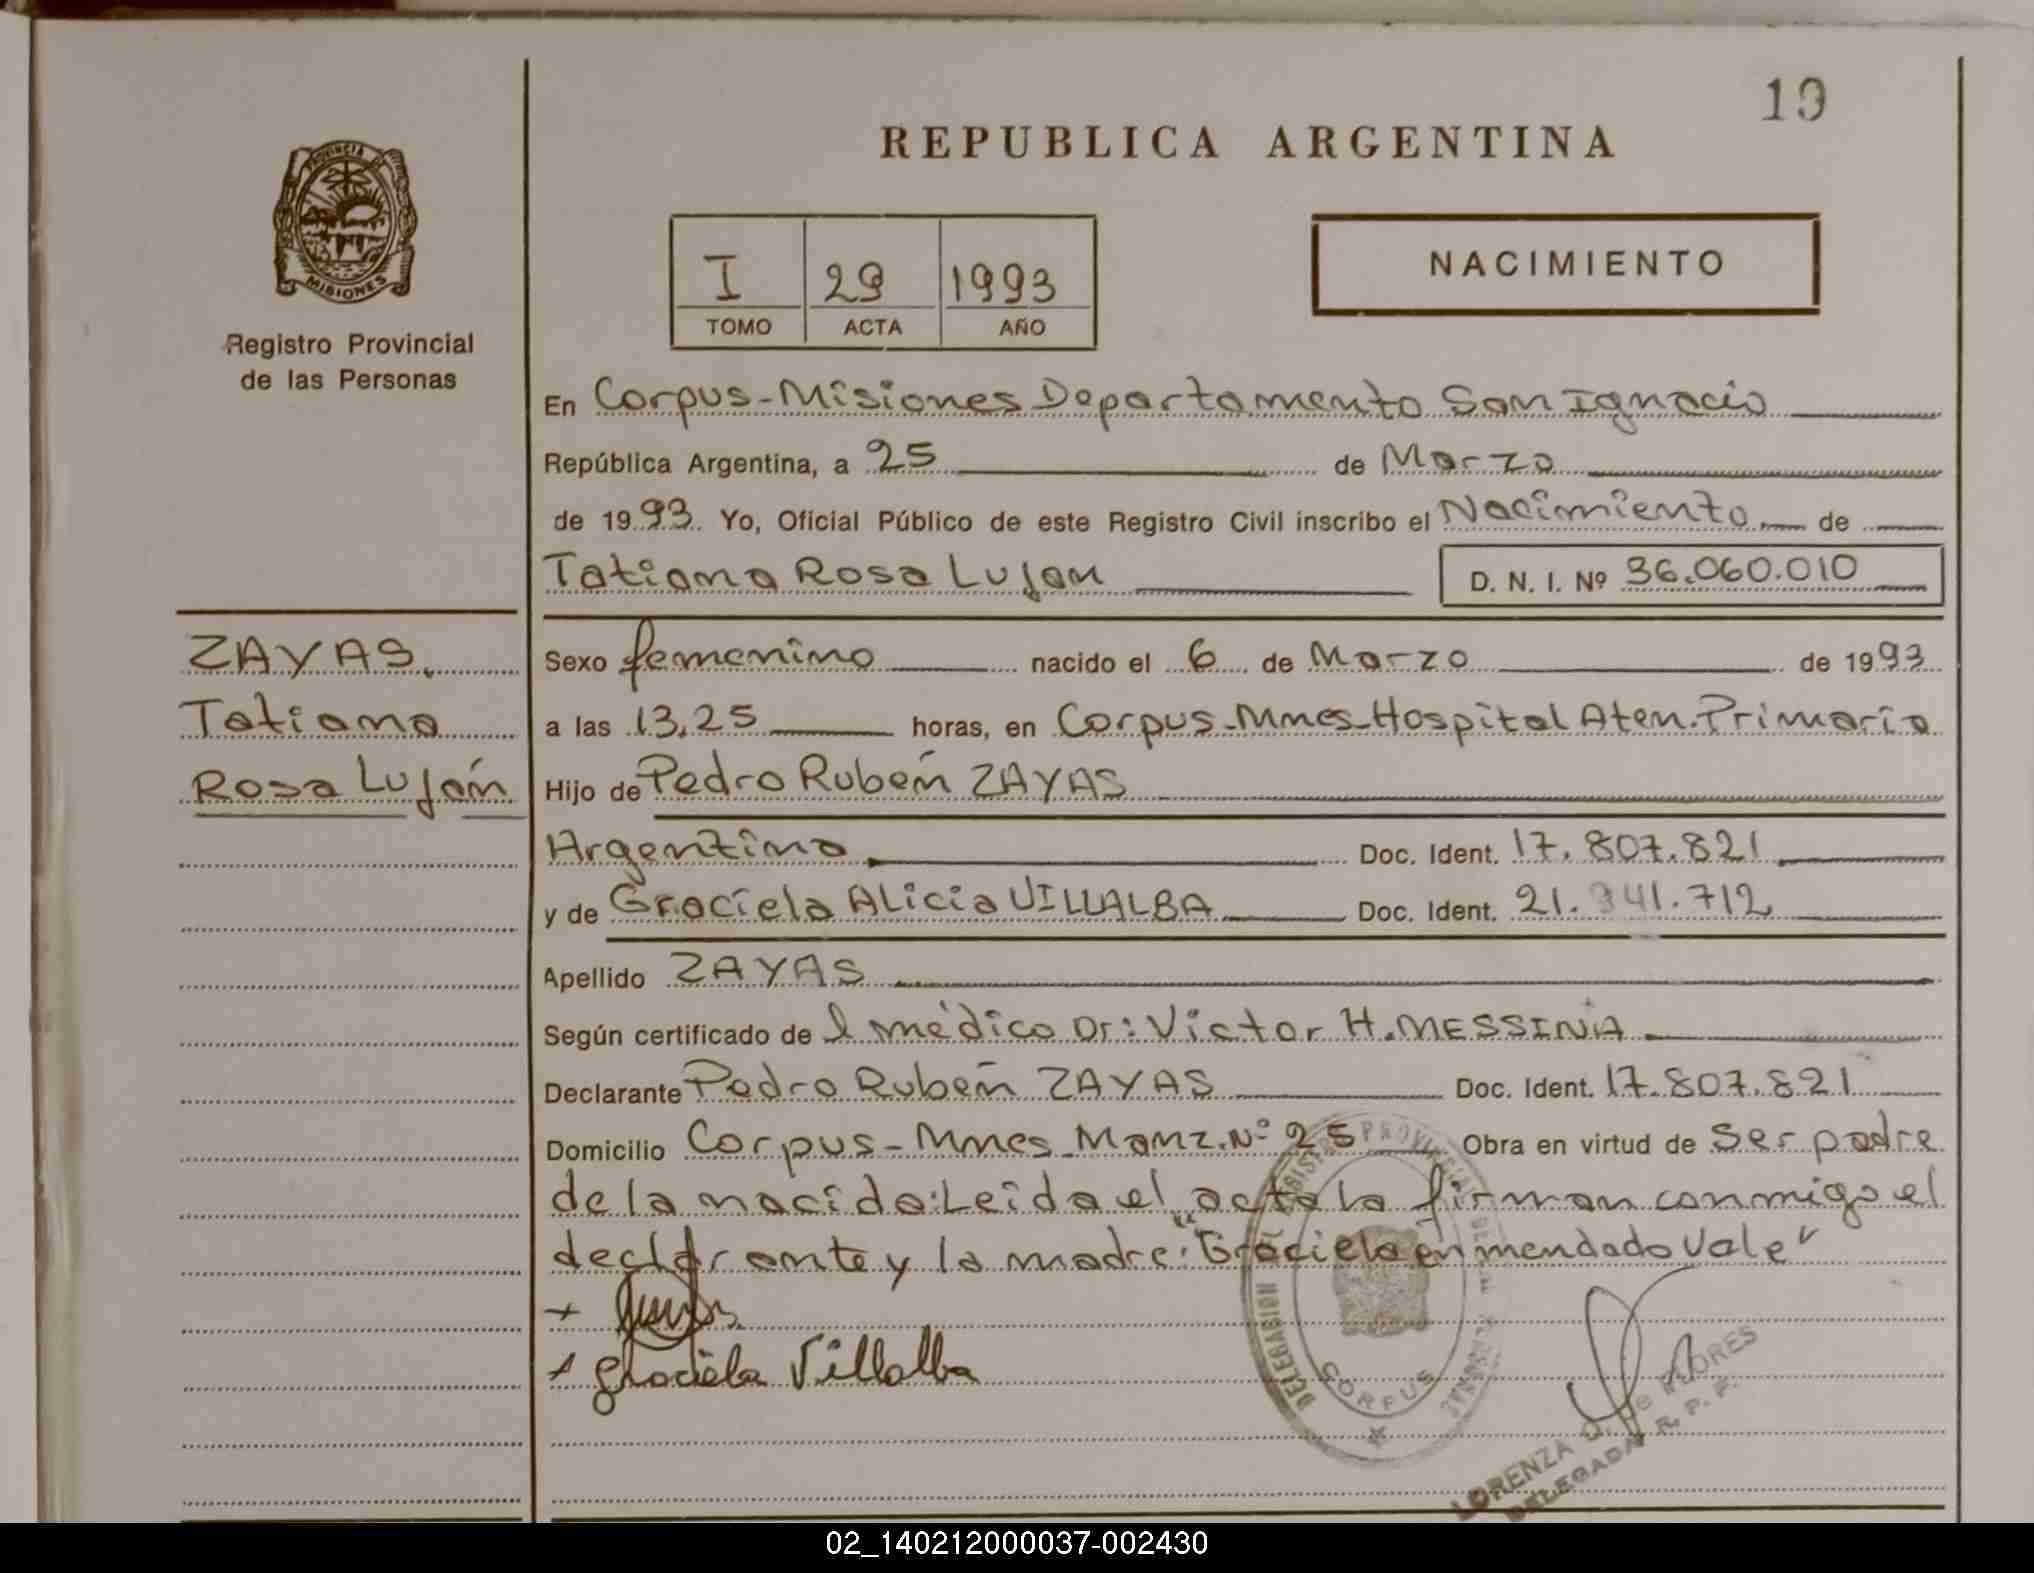 19
REPUBLICA ARGENTINA
PROVINCIA DE
MISIONES
Registro Provincial
de las Personas
I 29 1993
TOMO ACTA AÑO
NACIMIENTO
En Corpus-Misiones Departamento San Ignacio
República Argentina, a 25 de Marzo
de 1993 Yo, Oficial Público de este Registro Civil inscribo el Nacimiento de
Tatiana Rosa Lujan D. N. I. Nº 36.060.010
ZAYAS,
Tatiana
Rosa Luján
Sexo femenino nacido el 6 de Marzo de 1993
a las 13,25 horas, en Corpus-Mnes-Hospital Aten. Primaria
Hijo de Pedro Rubén ZAYAS
Argentino Doc. Ident. 17.807.821
y de Graciela Alicia VILLALBA Doc. Ident. 21. 41.712
Apellido ZAYAS
Según certificado de l médico Dr: Victor H. MESSINA
Declarante Pedro Rubén ZAYAS Doc. Ident. 17.807.821
Domicilio Corpus-Mnes-Manz. Nº 25 Obra en virtud de Ser padre
de la nacida: Leida el acta la firman conmigo el
declarante y la madre: "Graciela enmendado Vale"
+
+ Graciela Villalba
DELEGASION PROVINCIAL DE
CORPUS
LORENZA de FLORES
DELEGADA R. P. P.
02_140212000037-002430